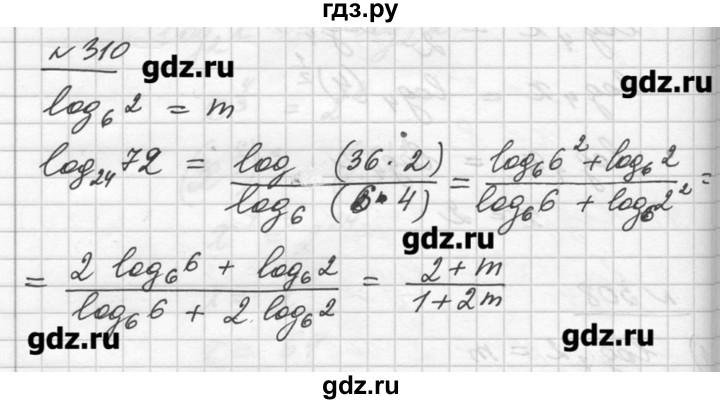 гдз.ру
№310
gdz.ru
gdz.ru
log₆ 2 = m
log₂₄ 72 = log (36 · 2) / log₆ (6 · 4) = (log₆ 6² + log₆ 2) / (log₆ 6 + log₆ 2²) =
gdz.ru
= (2 log₆ 6 + log₆ 2) / (log₆ 6 + 2 · log₆ 2) = (2 + m) / (1 + 2m)
gdz.ru
gdz.ru
gdz.ru